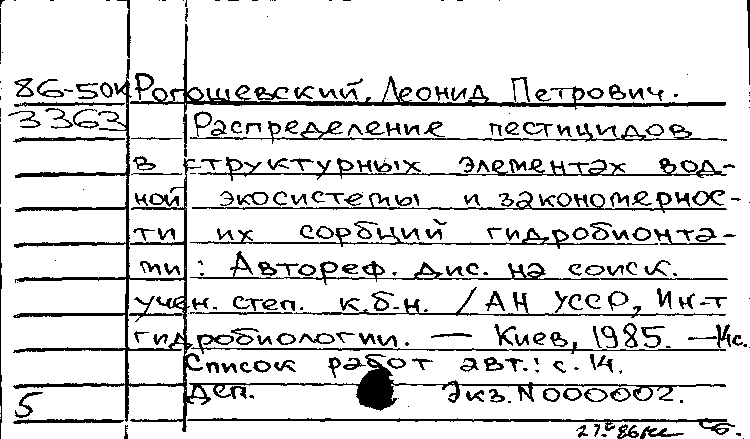 86-50к Рогошевский, Леонид Петрович.
3363 Распределение пестицидов
в структурных элементах вод-
ной экосистемы и закономернос-
ти их сорбций гидробионта-
ми: Автореф. дис. на соиск.
учен. степ. к.б.н. / АН УССР, Ин-т
гидробиологии. — Киев, 1985. — 14с.
Список работ авт.: с. 14.
Деп. Экз. N 000002.
5